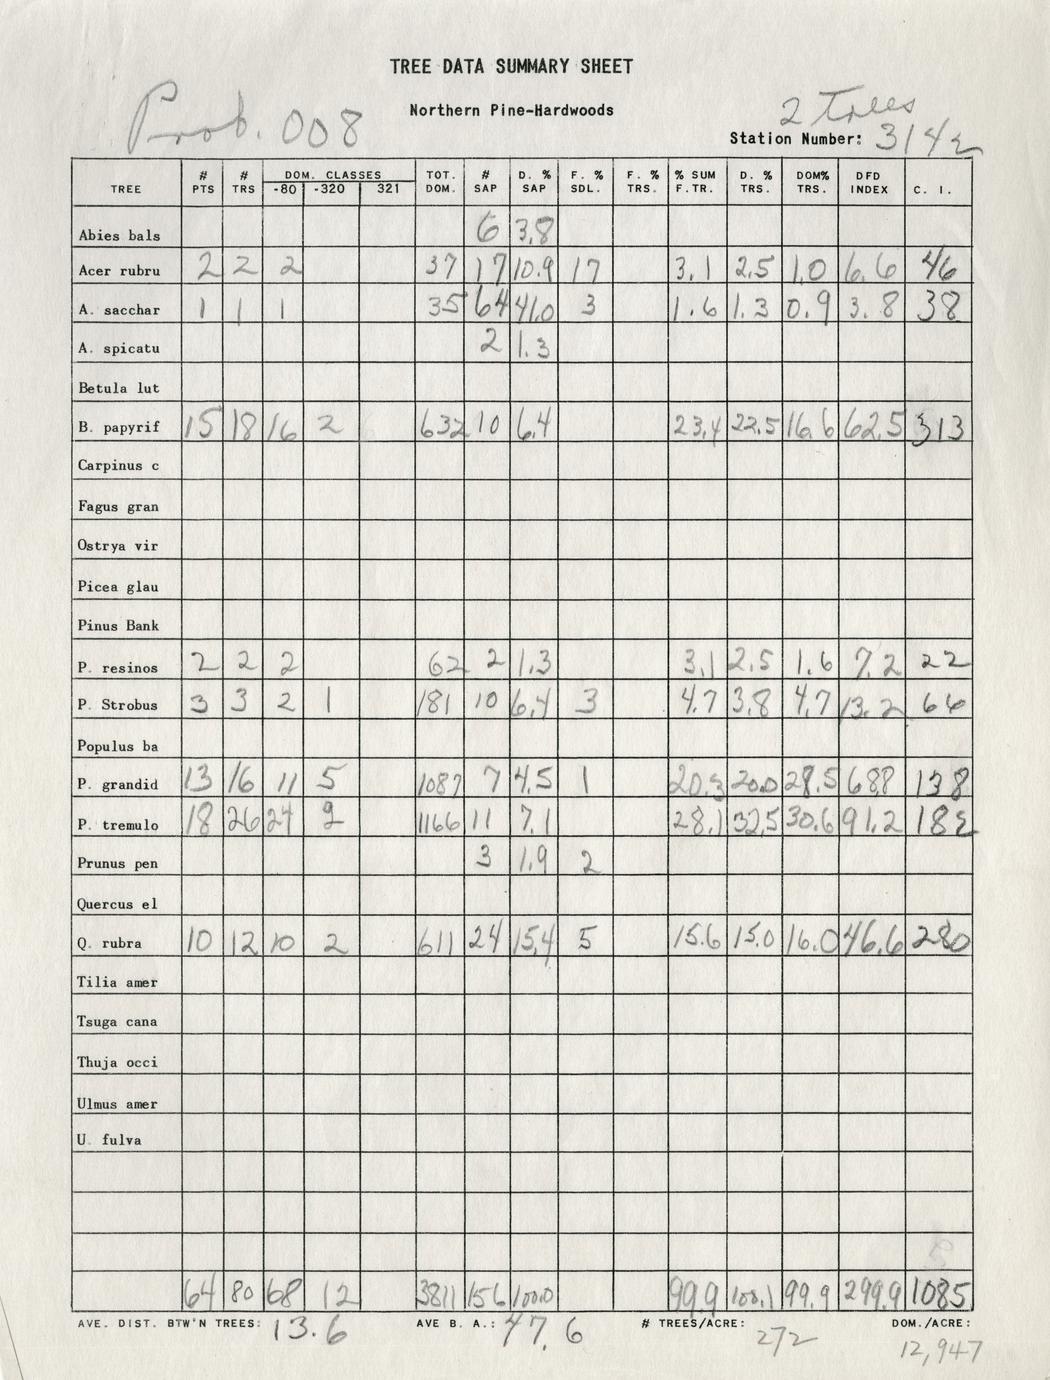 TREE DATA SUMMARY SHEET
Northern Pine-Hardwoods
Prob. 008
2 Trees
Station Number: 3142
TREE # PTS # TRS DOM. CLASSES -80 -320 321 TOT. DOM. # SAP D. % SAP F. % SDL. F. % TRS. % SUM F.TR. D. % TRS. DOM% TRS. DFD INDEX C. I.
Abies bals 6 3.8
Acer rubru 2 2 2 37 17 10.9 17 3.1 2.5 1.0 6.6 46
A. sacchar 1 1 1 35 64 41.0 3 1.6 1.3 0.9 3.8 38
A. spicatu 2 1.3
Betula lut
B. papyrif 15 18 16 2 632 10 6.4 23.4 22.5 16.6 62.5 313
Carpinus c
Fagus gran
Ostrya vir
Picea glau
Pinus Bank
P. resinos 2 2 2 62 2 1.3 3.1 2.5 1.6 7.2 22
P. Strobus 3 3 2 1 181 10 6.4 3 4.7 3.8 4.7 13.2 66
Populus ba
P. grandid 13 16 11 5 1087 7 4.5 1 20.3 20.0 28.5 68.8 138
P. tremulo 18 26 24 2 1166 11 7.1 28.1 32.5 30.6 91.2 182
Prunus pen 3 1.9 2
Quercus el
Q. rubra 10 12 10 2 611 24 15.4 5 15.6 15.0 16.0 46.6 280
Tilia amer
Tsuga cana
Thuja occi
Ulmus amer
U. fulva
64 80 68 12 3811 156 100.0 99.9 100.1 99.9 299.9 1085
AVE. DIST. BTW'N TREES: 13.6 AVE B. A.: 47.6 # TREES/ACRE: 272 DOM./ACRE: 12,947